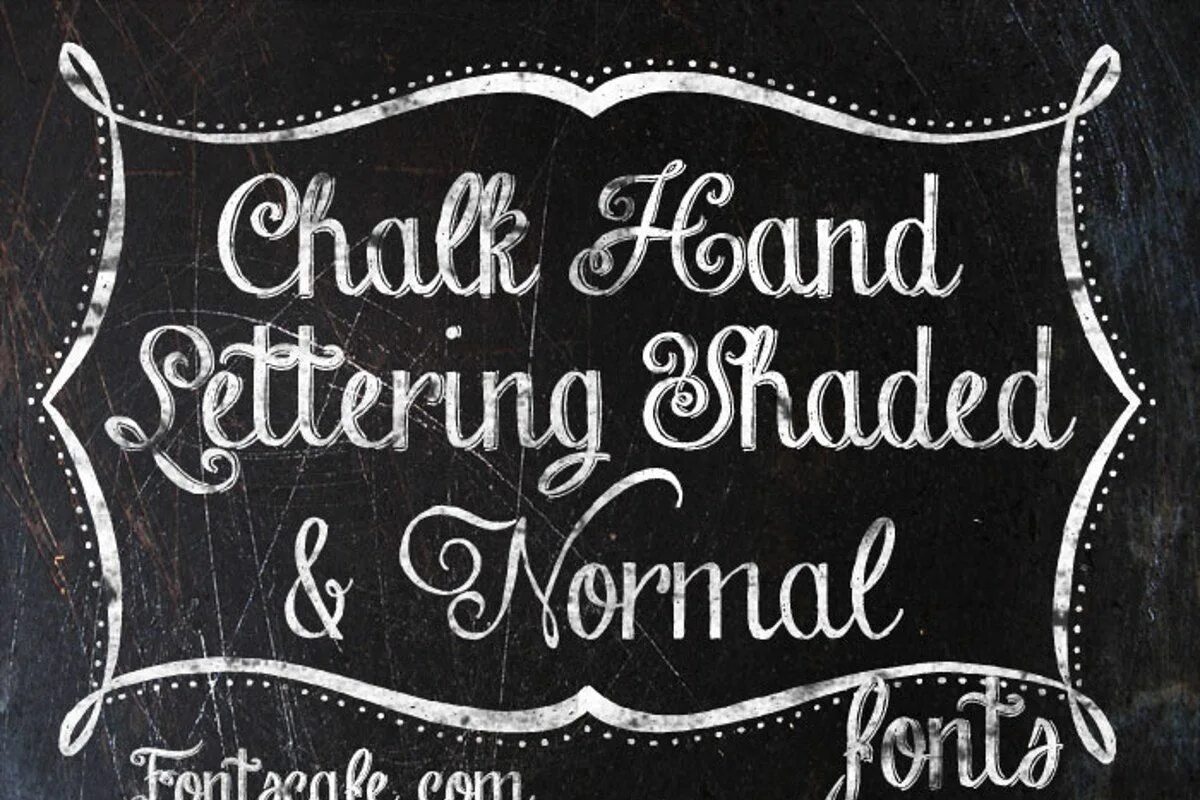 Chalk Hand
Lettering Shaded
& Normal
fonts
Fontscafe.com